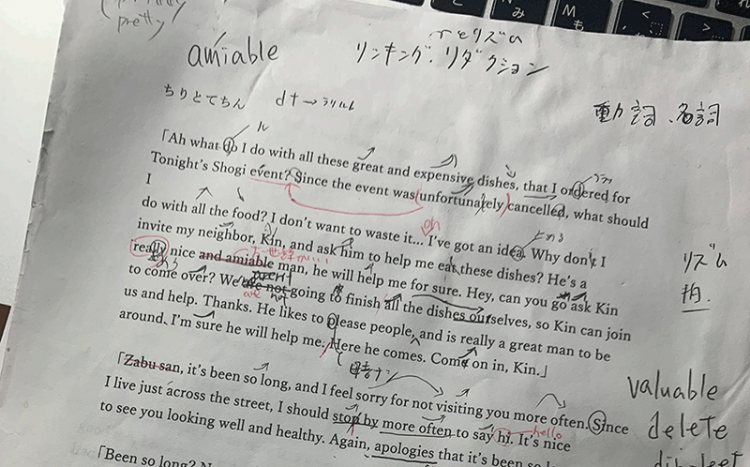 pretty
amiable
リンキング.リダクション
ちりとてちん
動詞、名詞
「Ah what do I do with all these great and expensive dishes, that I ordered for
Tonight's Shogi event? Since the event was unfortunately cancelled, what should
I
do with all the food? I don't want to waste it... I've got an idea. Why don't I
invite my neighbor, Kin, and ask him to help me eat these dishes? He's a
really nice and amiable man, he will help me for sure. Hey, can you go ask Kin
to come over? We are not going to finish all the dishes ourselves, so Kin can join
us and help. Thanks. He likes to please people, and is really a great man to be
around, I'm sure he will help me. Here he comes. Come on in, Kin.」
リズム
「Zabu san, it's been so long, and I feel sorry for not visiting you more often. Since
I live just across the street, I should stop by more often to say hi. It's nice
hello
to see you looking well and healthy. Again, apologies that it's been so
valuable
delete
「Been so long?